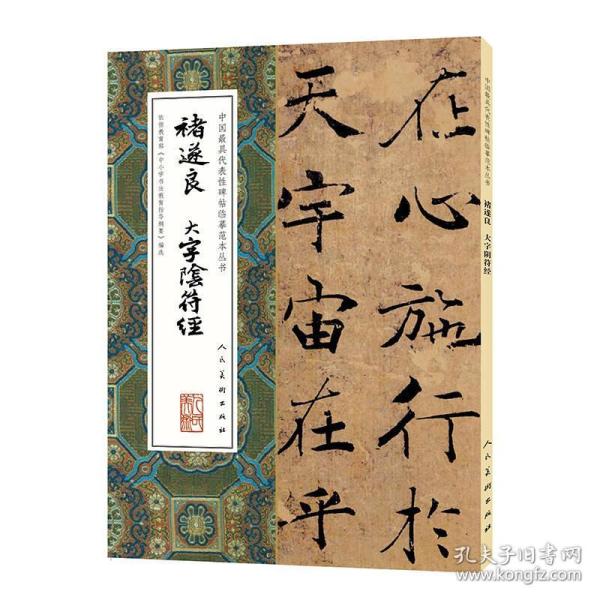 中国最具代表性碑帖临摹范本丛书
褚遂良 大字陰符經
依据教育部《中小学书法教育指导纲要》编选
人民美術出版社
在心施行於
天宇宙在乎
中国最具代表性碑帖临摹范本丛书
褚遂良 大字阴符经
人民美術出版社
孔夫子旧书网
www.kongfz.com